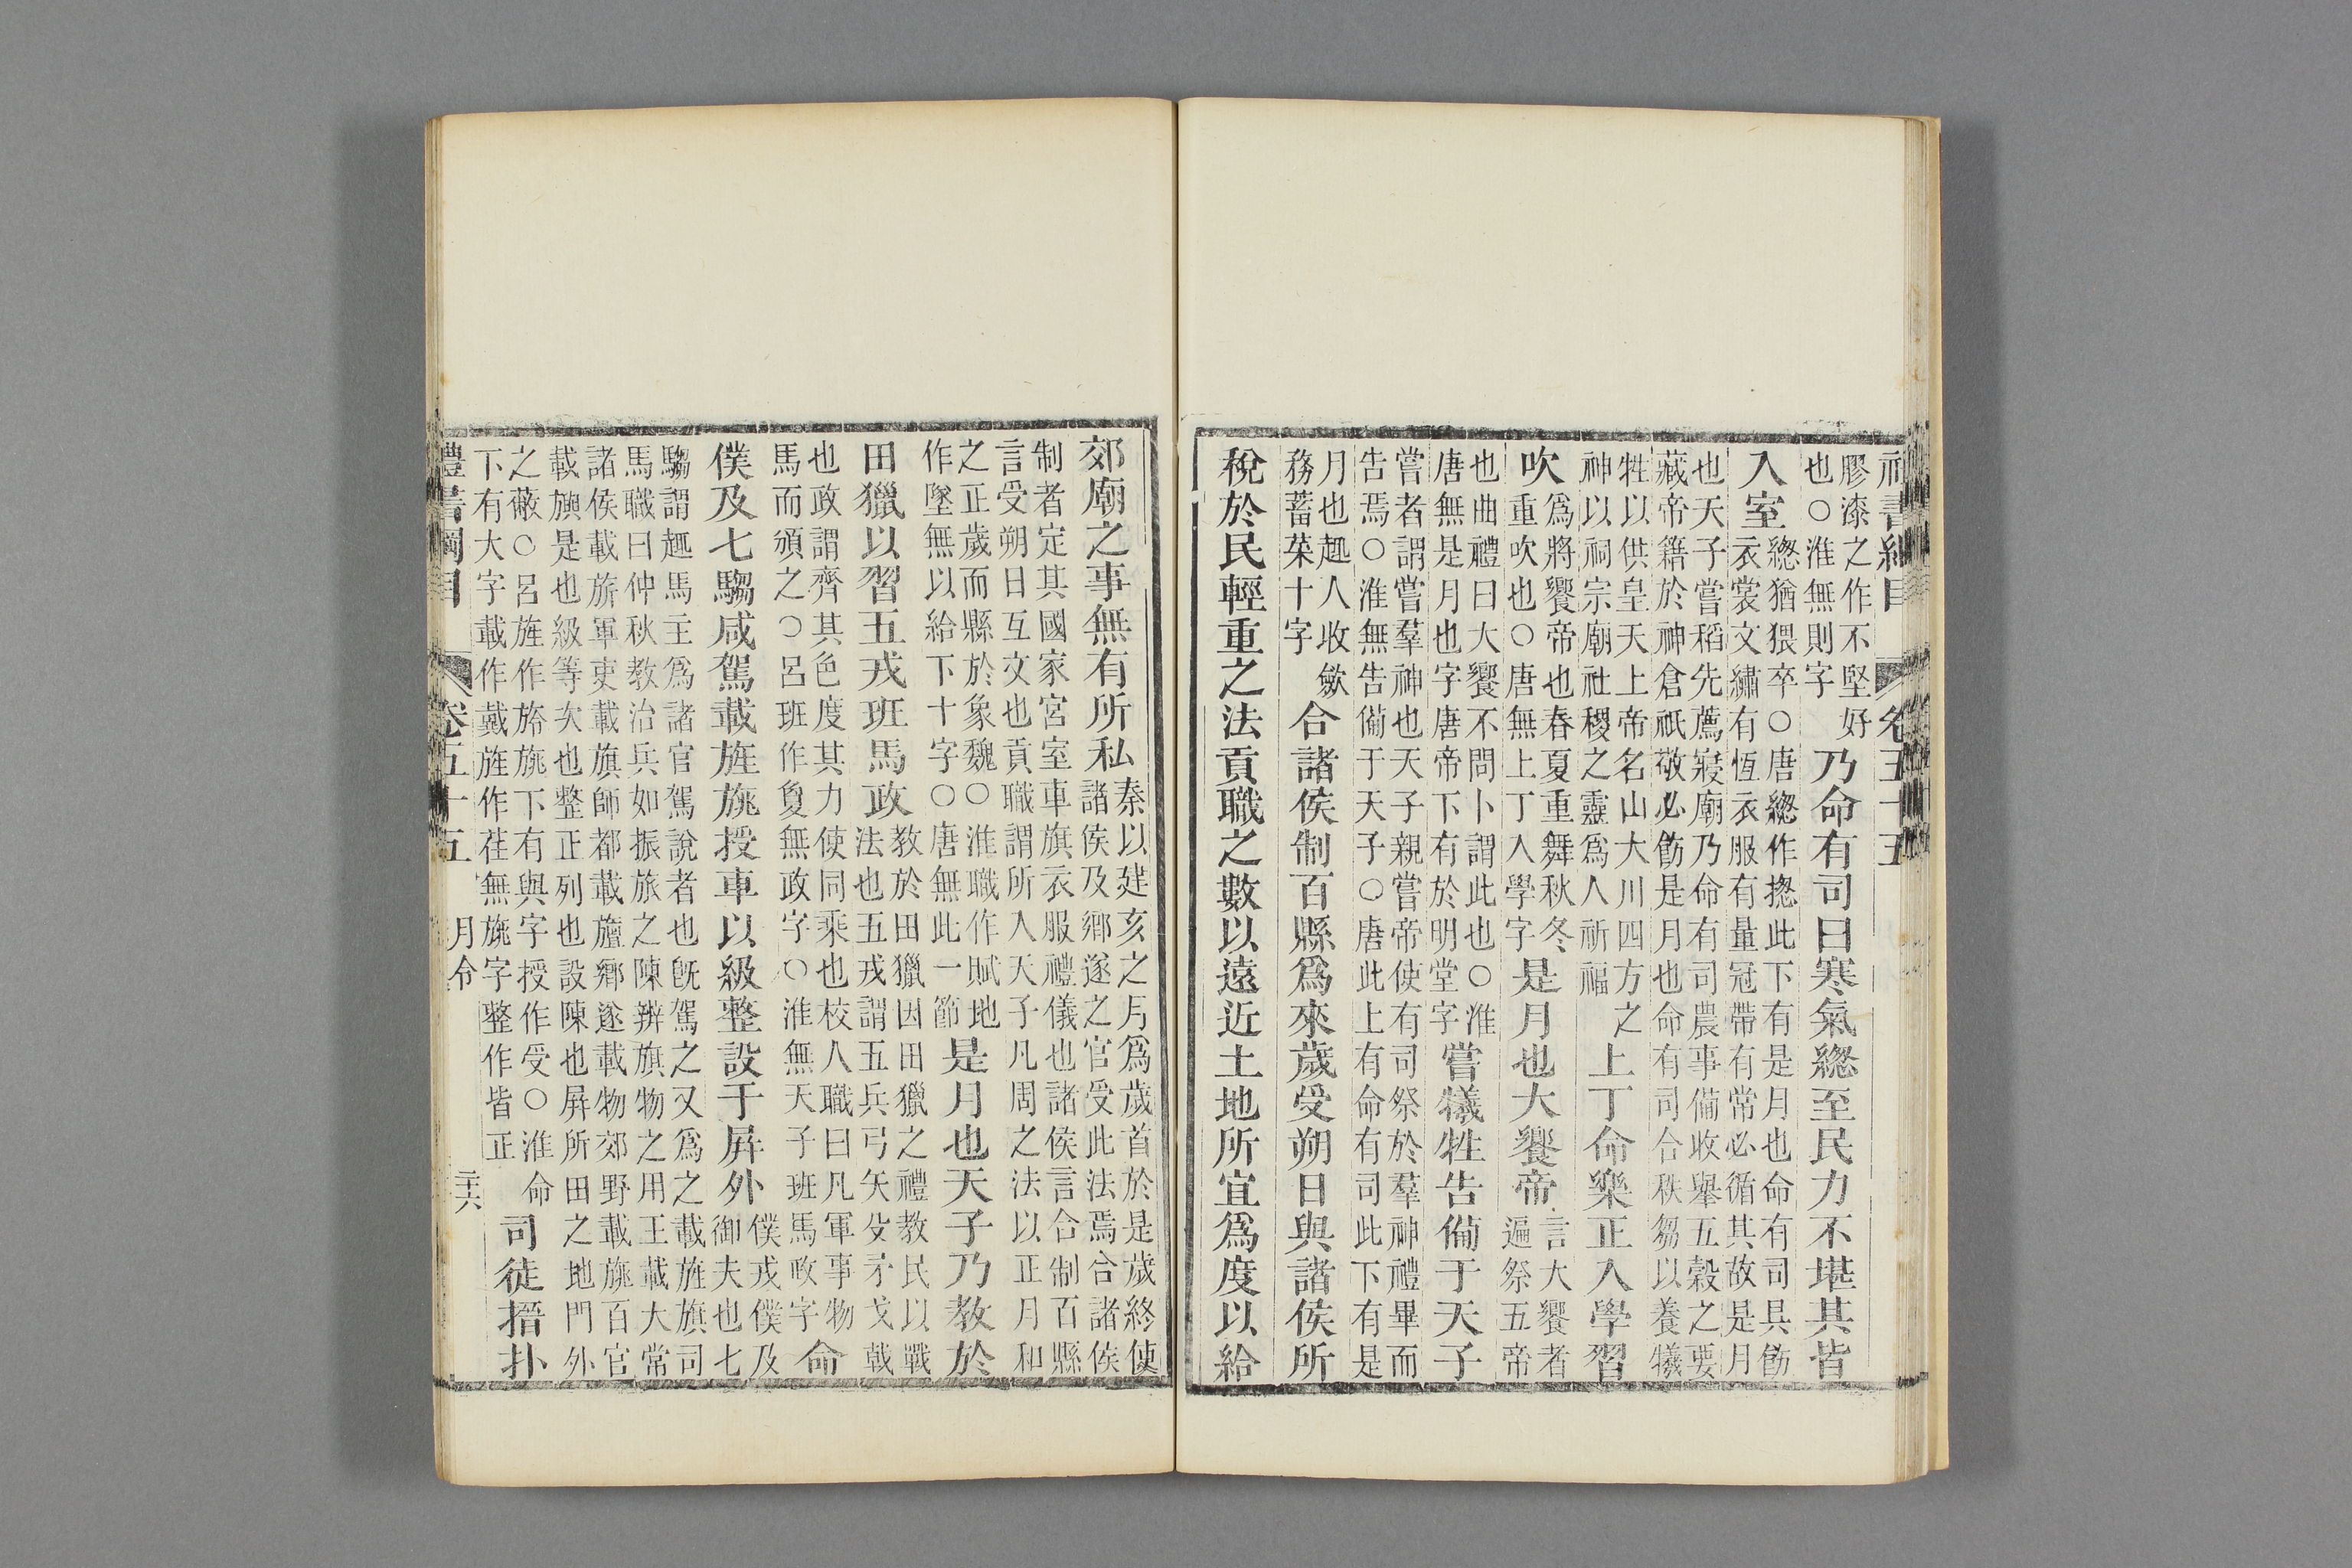 禮書綱目　卷五十五
膠漆之作不堅好也○淮無則字乃命有司曰寒氣緫至民力不堪其皆
入室緫猶猥卒○唐緫作揔此下有是月也命有司具飭衣裳文繡有恆衣服有量冠帶有常必循其故是月
也天子嘗稻先薦寢廟乃命有司農事備收舉五穀之要藏帝籍於神倉祇敬必飭是月也命有司合秩芻以養犧
牲以供皇天上帝名山大川四方之神以祠宗廟社稷之靈爲人祈福上丁命樂正入學習
吹爲將饗帝也春夏重舞秋冬重吹也○唐無上丁入學字是月也大饗帝言大饗者遍祭五帝
也曲禮曰大饗不問卜謂此也○淮唐無是月也字唐帝下有於明堂字嘗犧牲告備于天子
嘗者謂嘗羣神也天子親嘗帝使有司祭於羣神禮畢而告焉○淮無告備于天子○唐此上有命有司此下有是
月也趣人收斂務蓄菜十字合諸侯制百縣爲來歲受朔日與諸侯所
稅於民輕重之法貢職之數以遠近土地所宜爲度以給
郊廟之事無有所私秦以建亥之月爲歲首於是歲終使諸侯及鄉遂之官受此法焉合諸侯
制者定其國家宮室車旗衣服禮儀也諸侯言合制百縣言受朔日互文也貢職謂所入天子凡周之法以正月和
之正歲而縣於象魏○淮職作賦地作墜無以給下十字○唐無此一節是月也天子乃教於
田獵以習五戎班馬政教於田獵因田獵之禮教民以戰法也五戎謂五兵弓矢殳矛戈戟
也政謂齊其色度其力使同乘也校人職曰凡軍事物馬而頒之○呂班作㕙無政字○淮無天子班馬政字命
僕及七騶咸駕載旌旐授車以級整設于屏外僕戎僕及御夫也七
騶謂趣馬主爲諸官駕說者也旣駕之又爲之載旌旗司馬職曰仲秋教治兵如振旅之陳辨旗物之用王載大常
諸侯載旂軍吏載旗師都載旜鄉遂載物郊野載旐百官載旟是也級等次也整正列也設陳也屏所田之地門外
之蔽○呂旌作旍旐下有輿字授作受○淮命下有大字載作戴旌作荏無旐字整作皆正司徒搢扑
禮書綱目　卷五十五　月令　二十六